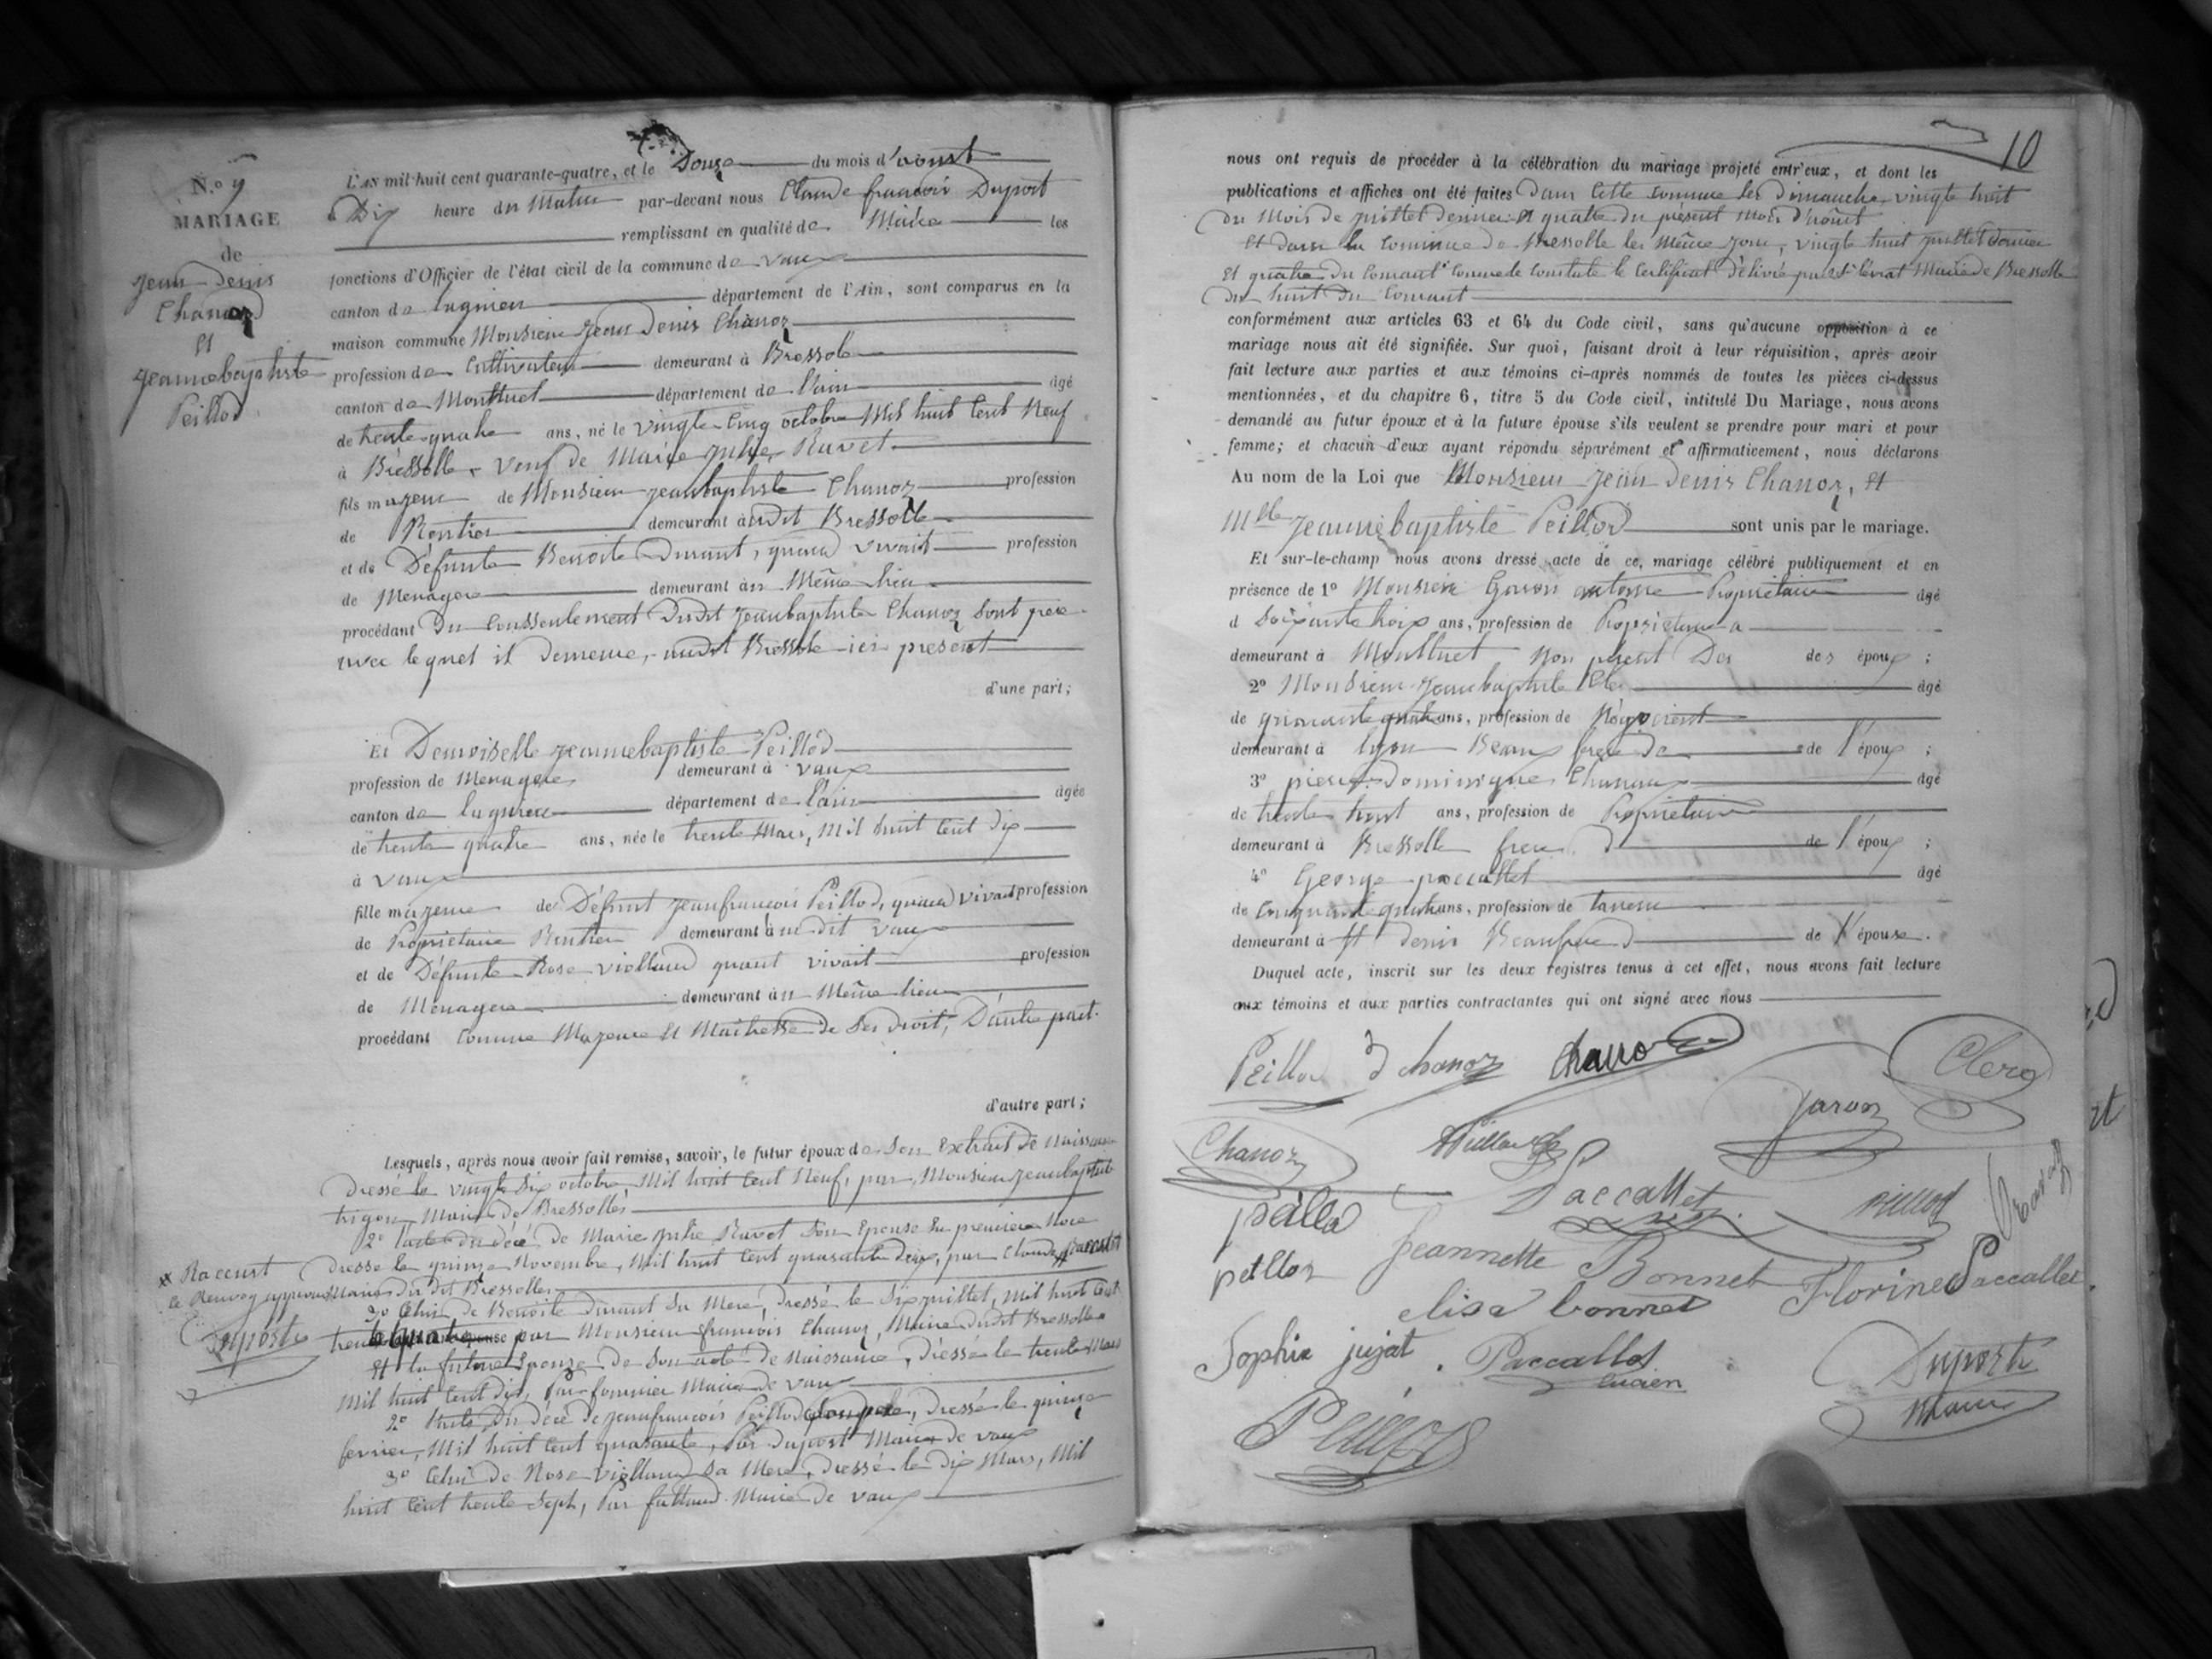 N.o 9
MARIAGE
de
Jean Denis
Chanoz
Et
Jeannebaptiste
Peillod
L'AN mil huit cent quarante-quatre, et le Douze du mois d'août
à Dix heure du Matin par-devant nous Claude françois Duport
remplissant en qualité de Maire les
fonctions d'Officier de l'état civil de la commune de Vaux
canton de lagnieu département de l'Ain, sont comparus en la
maison commune Monsieur Jean Denis Chanoz
profession de Cultivateur demeurant à Bressole
canton de Montluel département de l'ain âgé
de trente-quatre ans, né le vingte-Cinq octobre Mil huit Cent Neuf
à Bressolle, Veuf de Marie Julie Ravet
fils majeur de Monsieur Jeanbaptiste Chanoz profession
de Rentier demeurant àudit Bressolle
et de Défunte Benoite Durant, quand vivait profession
de Menagere demeurant àu Même lieu
procédant Du Conssentement Dudit Jeanbaptiste Chanoz Sont père
avec lequel il demeure, audit Bressole ici présent
d'une part;
Et Demoiselle Jeannebaptiste Peillod
profession de Menagere demeurant à Vaux
canton de lagnieu département de l'ain âgée
de trente quatre ans, née le trente Mars, Mil huit Cent dix
à Vaux
fille majeure de Défunt Jeanfrancois Peillod, quand vivait profession
de Propriétaire Rentier demeurant àu dit Vaux
et de Défunte Rose Viollaud quant vivait profession
de Ménagere demeurant àu Même lieu
procédant Comme Majeure Et Maitresse de Ses Droit, D'autre part.
d'autre part;
Lesquels, après nous avoir fait remise, savoir, le futur époux de Son Extrait de Naissance
dressé le vingte Six octobre Mil huit Cent Neuf, par Monsieur Jeanbaptiste
trigon Maire de Bressolles
2° l'acte du décé de Marie Julie Ravet Son Epouse En premiere Noce
x Raccurt Dressé le quinze Novembre, Mil huit Cent quarante Deux, par Claude
le Renvoy approuvé Maire du dit Bressolles
3° Celui de Benoite Durant Sa Mere, dressé le Six juillet, Mil huit Cent
Duport trente quatre par Monsieur françois Chanoz, Maire dudit Bressolles
Et la future Epouze de Son acte de Naissance, dressé le trente Mars
Mil huit Cent dix, Par fournier Maire de Vaux
2° l'acte Du décé de Jeanfrancois Peillod Son pere, dressé le quinze
fevrier, Mil huit Cent quarante, Par Duport Maire de Vaux
3° Celui de Rose Viollaud Sa Mere, dressé le Dix Mars, Mil
huit Cent trente Sept, Par Maire de Vaux
10
nous ont requis de procéder à la célébration du mariage projeté entr'eux, et dont les
publications et affiches ont été faites Dans Cette Commune les Dimanche, vingte huit
du Mois de juillet dernier Et quatre du présent Mois D'août
Et dans la Commune de Bressolle les Même Jour, vingte huit juillet dernier
Et quatre Du Courant Comme le Constate le Certificat Délivré par Maire de Bressolle
du huit du Courant
conformément aux articles 63 et 64 du Code civil, sans qu'aucune opposition à ce
mariage nous ait été signifiée. Sur quoi, faisant droit à leur réquisition, après avoir
fait lecture aux parties et aux témoins ci-après nommés de toutes les pièces ci-dessus
mentionnées, et du chapitre 6, titre 5 du Code civil, intitulé Du Mariage, nous avons
demandé au futur époux et à la future épouse s'ils veulent se prendre pour mari et pour
femme; et chacun d'eux ayant répondu séparément et affirmativement, nous déclarons
Au nom de la Loi que Monsieur Jean Denis Chanoz, Et
Mlle Jeannebaptiste Peillod sont unis par le mariage.
Et sur-le-champ nous avons dressé acte de ce mariage célébré publiquement et en
présence de 1° Monsieur antoine Propriétaire âgé
d Soixante trois ans, profession de Propriétaire
demeurant à Montluel Non parent Des des époux ;
2° Monsieur Jeanbaptiste Clerc âgé
de quarante quatre ans, profession de Négociant
demeurant à lyon Beaux frere de de l'époux ;
3° pierre Dominique Chanoz âgé
de trente huit ans, profession de Propriétaire
demeurant à Bressolle frere d de l'époux ;
4° George paccallet âgé
de Cinquante quatre ans, profession de tanneur
demeurant à St Denis Beaufrere d de l'épouse.
Duquel acte, inscrit sur les deux registres tenus à cet effet, nous avons fait lecture
aux témoins et aux parties contractantes qui ont signé avec nous
Peillod D chanoz Chanoz Clerc
Chanoz
peillod Paccallet
peillod Jeannette Bonnet Florine Paccallet
elisa bonnet
Sophie jujat Paccallet
lucien
Duport
Maire
Peillod